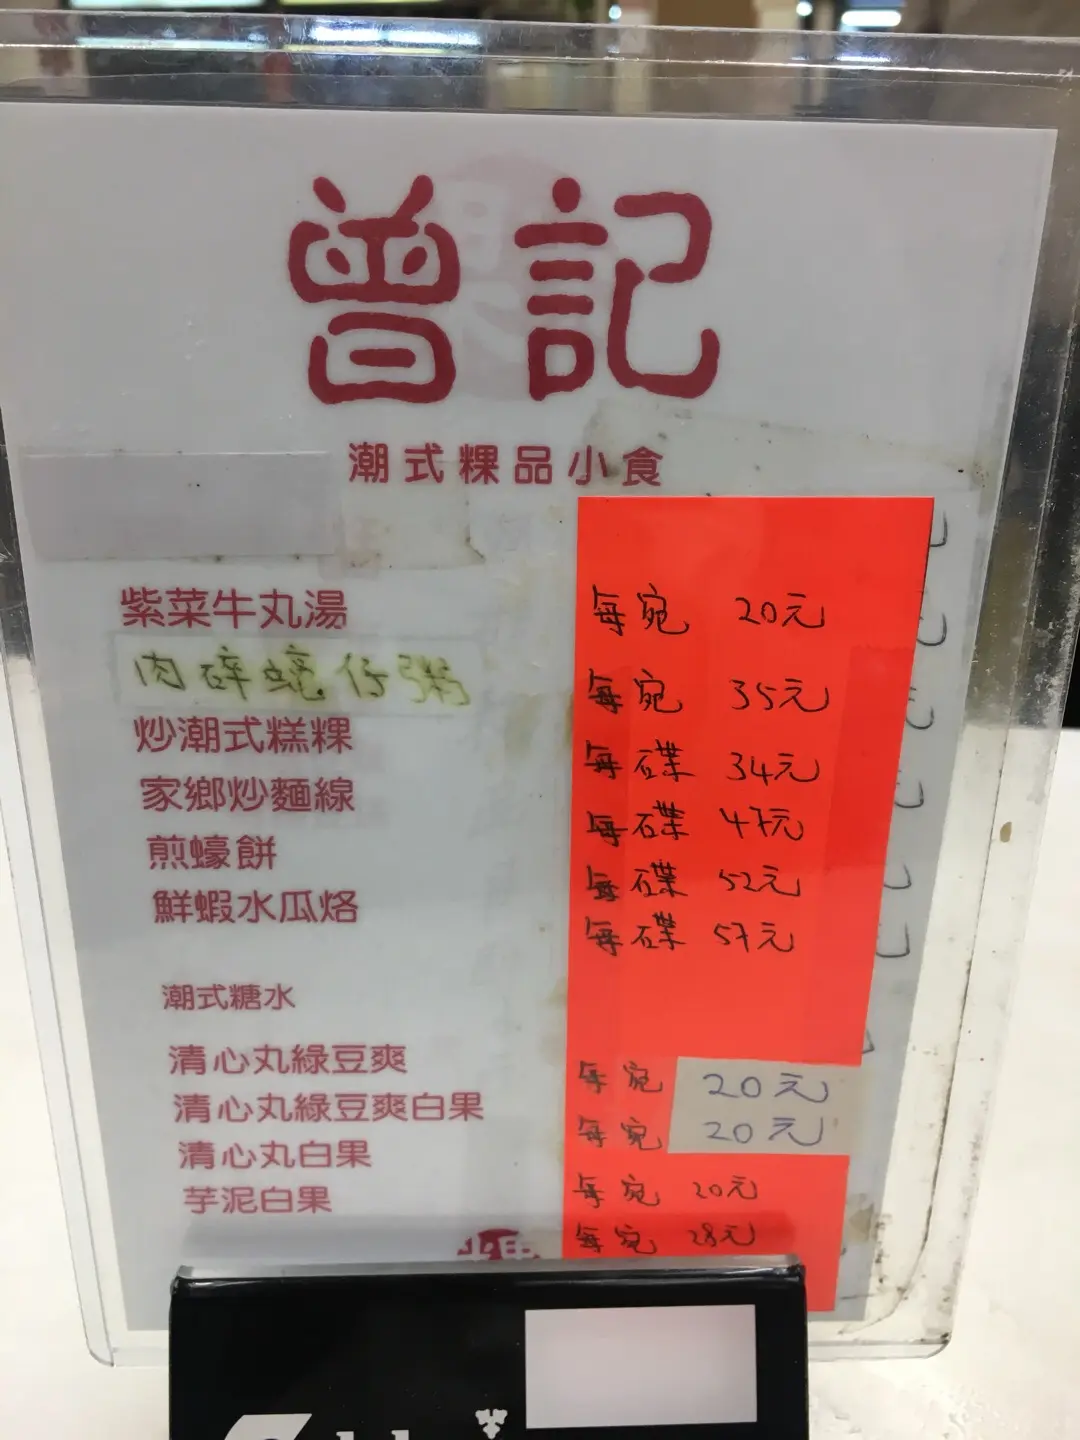 曾記
潮式粿品小食
紫菜牛丸湯 每宛 20元
肉碎蠔仔粥 每宛 35元
炒潮式糕粿 每碟 34元
家鄉炒麵線 每碟 47元
煎蠔餅 每碟 52元
鮮蝦水瓜烙 每碟 57元
潮式糖水
清心丸綠豆爽 每宛 20元
清心丸綠豆爽白果 每宛 20元
清心丸白果 每宛 20元
芋泥白果 每宛 28元